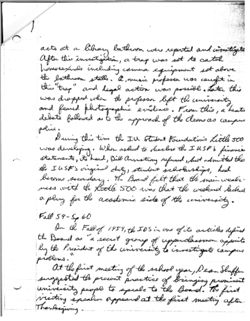 acts at a library bathroom were reported and investigated.
After this investigation, a trap was set to catch
homosexuals including camera equipment set above
the bathroom stalls. A music professor was caught in
this "trap" and legal action was possible. Later this
was dropped when the professor left the university
and feared photographic evidence. From this, a heated
debate followed as to the approach of the dean as campus
police.
During this time the IU Student Foundation's Little 500
was developing. When asked to disclose the IUSF's finance
statements, its head, Bill Armstrong refused, but admitted that
the IUSF's original duty, student scholarships, had
become secondary. The Board felt that the main
ness with the Little 500 was that the weekend lacked
a plug for the academic side of the university.
Fall 59-Sp 60
In the Fall of 1959, the IDS in one of its articles defined
the Board as "a secret group of upperclassmen appointed
by the President of the university to investigate campus
problems."
At the first meeting of the school year, Dean Shaffer
suggested the present practice of bringing prominent
university people to speak to the Board. The first
visiting speaker appeared at the first meeting after
Thanksgiving.